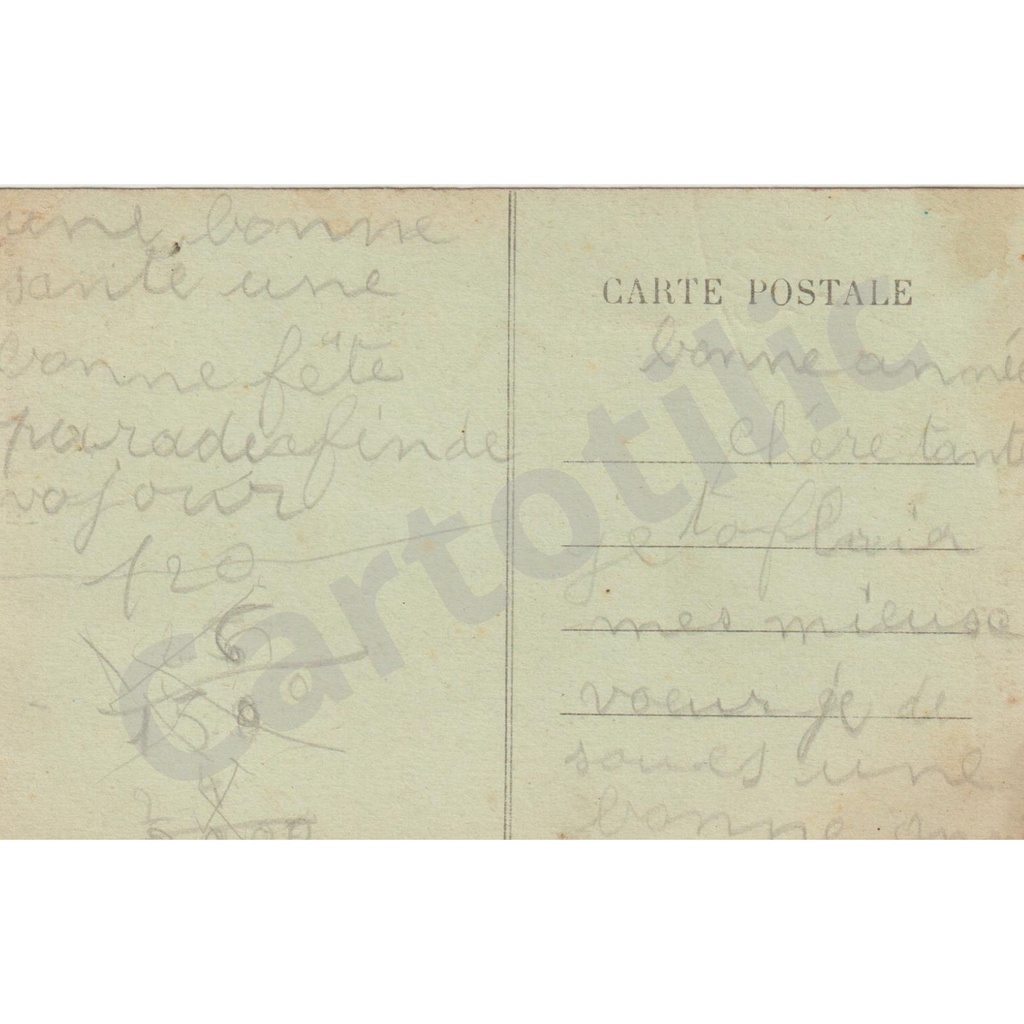 une bonne
santé une
bonne fête
paradis finde
vo jour
120
6
150
CARTE POSTALE
bonne année
chère tante
je toflrir
mes mieuse
voeur je de
soues une
bonne
cartotilic